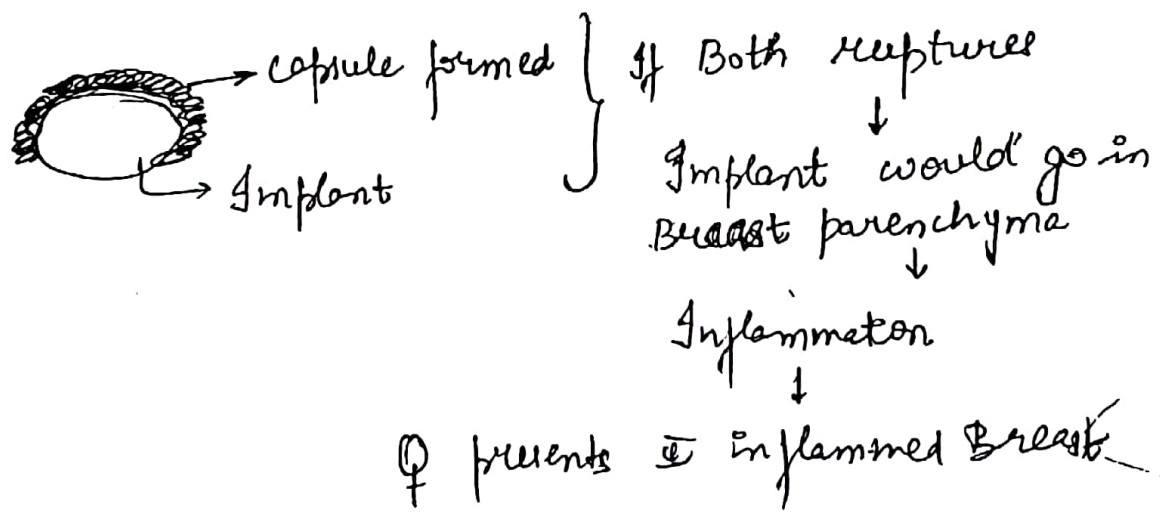 capsule formed
Implant
If Both ruptures
Implant would go in
Breast parenchyma
Inflammaton
♀ presents c̄ inflammed Breast